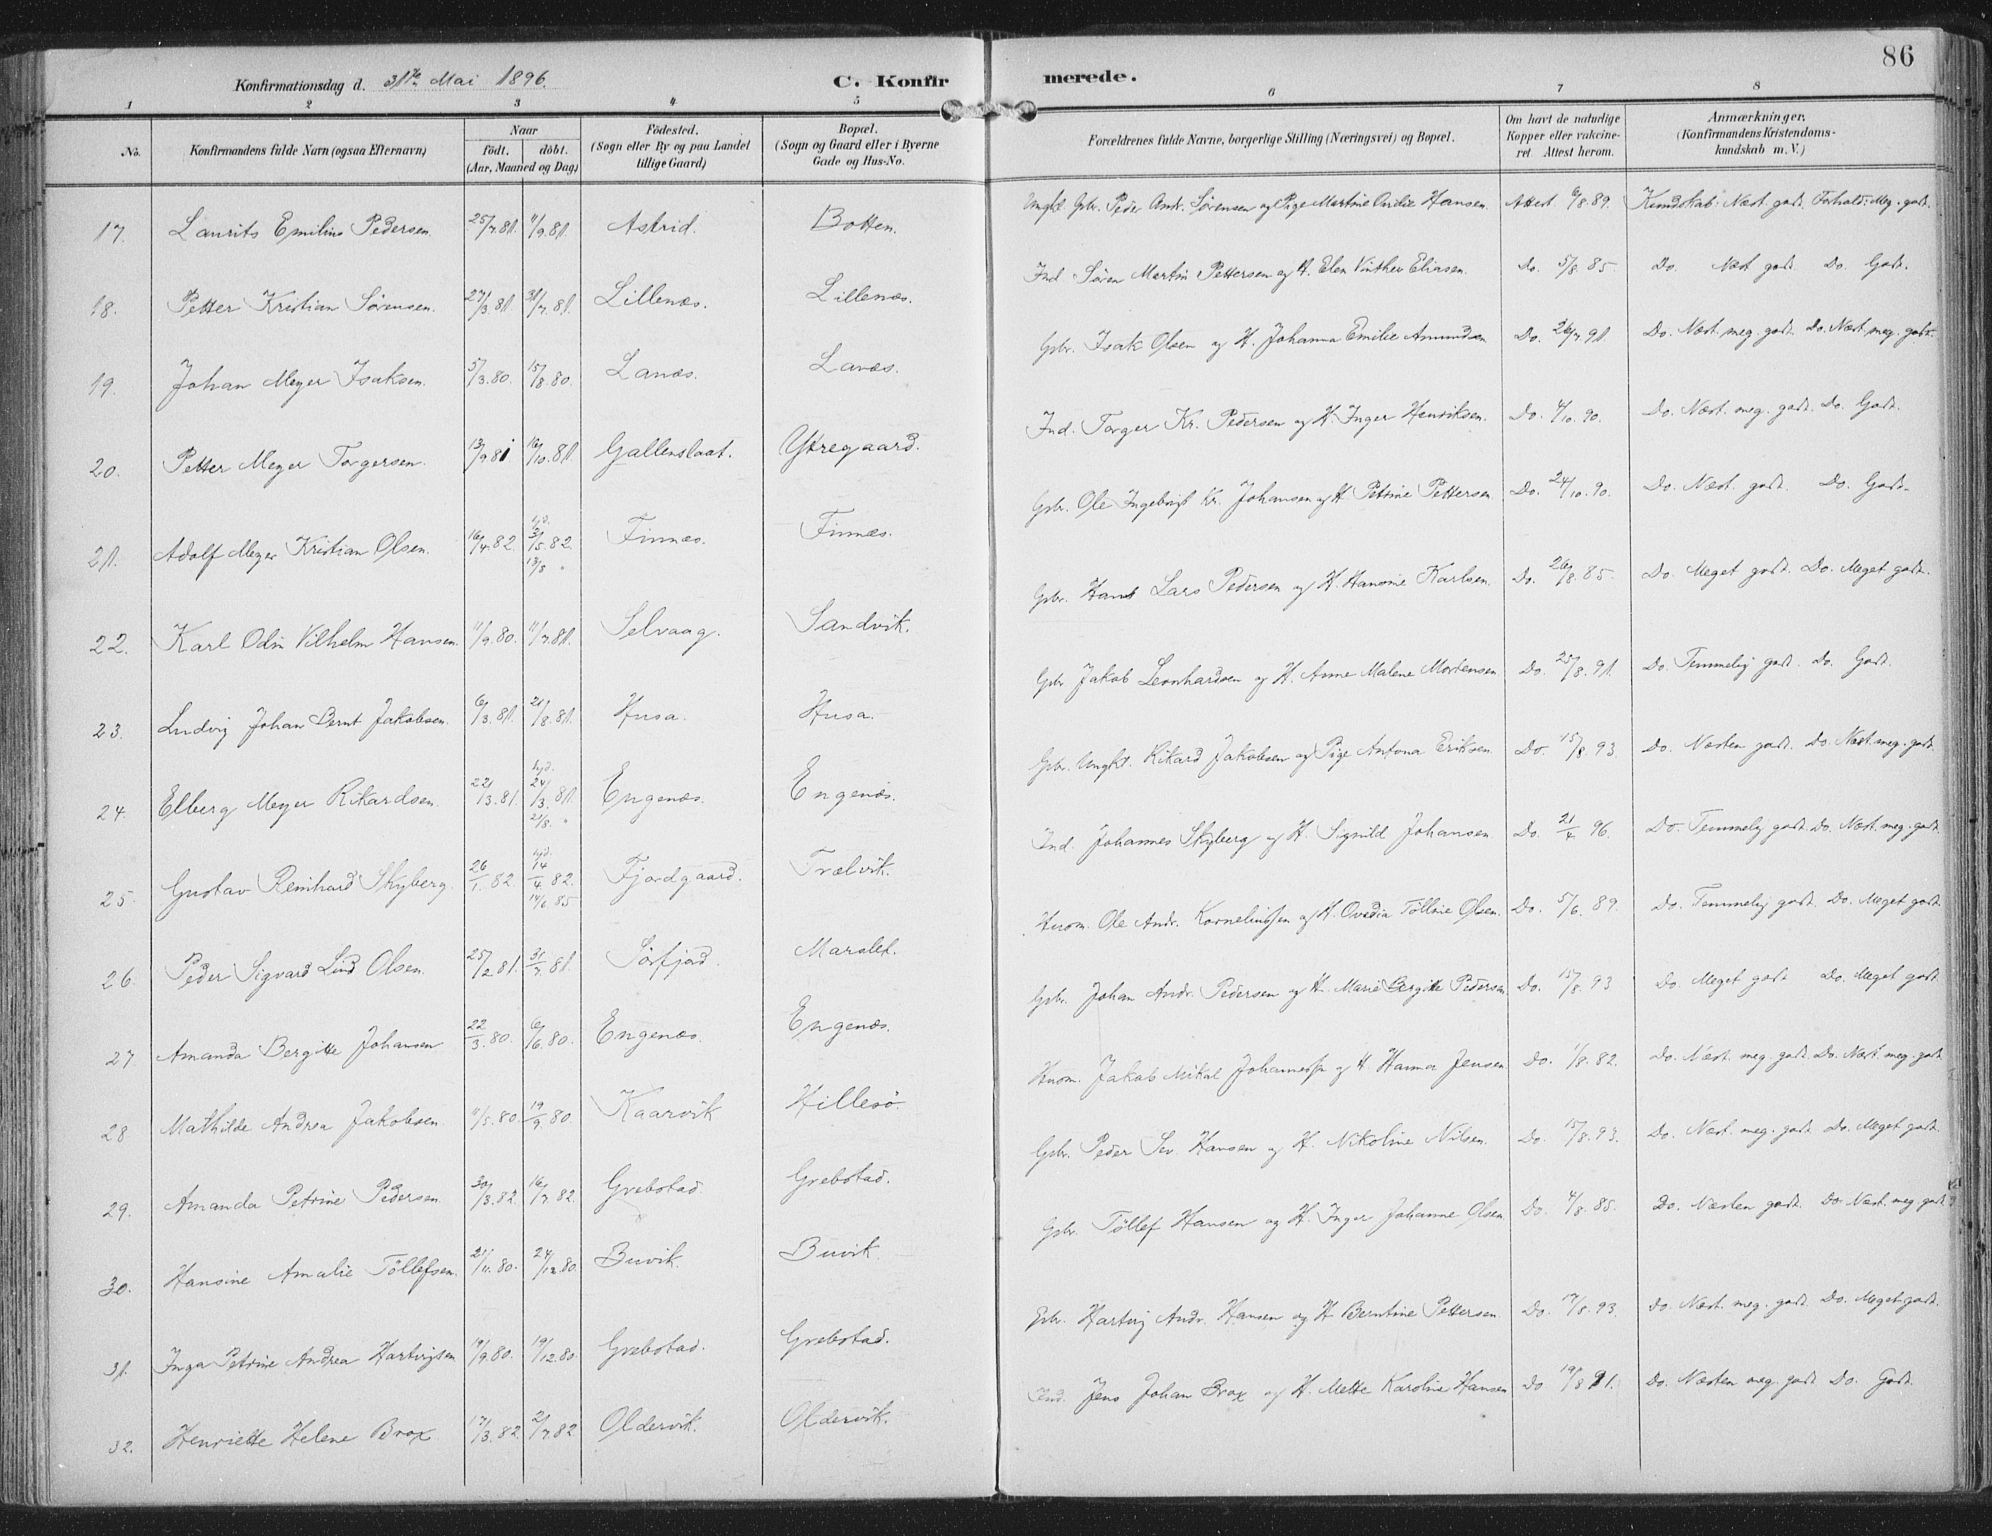 86
Konfirmationsdag d. 31te Mai 1896.
C. Konfirmerede.
1 2 3 4 5 6 7 8
No. Konfirmandens fulde Navn (ogsaa Efternavn) Naar födt. döbt. (Aar, Maaned og Dag) Födested. (Sogn eller By og paa Landet tillige Gaard) Bopæl. (Sogn og Gaard eller i Byerne Gade og Hus-No. Forældrenes fulde Navne, borgerlige Stilling (Næringsvei) og Bopæl. Om havt de naturlige Kopper eller vakcineret Attest herom. Anmærkninger. (Konfirmandens Kristendomskundskab m. V.)
17. Laurits Emilius Pedersen. 25/7.81. 11/9.81. Astrid. Botten. Ungkl. Gbr. Peder Andr. Sörensen og Pige Martine Hansen. Attest 6/8.89. Kundskab: Næst. godt. Forhold: Meg. godt.
18. Petter Kristian Sörensen. 27/3.81. 31/7.81. Lillenæs. Lillenæs. Ind. Sören Martin Pettersen og H. Elen Vinther Eliasen. Do. 5/8.85. Do. Næst godt Do. Godt.
19. Johan Meyer Isaksen. 5/3.80. 15/8.80. Lanæs. Lanæs. Gbr. Isak Olsen og H. Johanna Emilie Amundsen Do. 26/7.91. Do. Næst. meg. godt. Do. Næst. meg. godt.
20. Petter Meyer Torgersen. 13/9.81 16/10.81. Gallenslaat. Ytregaard. Ind. Torger Kr. Pedersen og H. Inger Henriksen. Do. 4/10.90. Do. Næst. meg. godt. Do. Godt.
21. Adolf Meyer Kristian Olsen. 16/4.82. hjd. 3/5.82 13/8 " Finnæs. Finnæs. Gbr. Ole Ingebrigt Kr. Johansen og H Petrine Pettersen Do. 24/10.90. Do. Næst. godt. Do. Godt.
22. Karl Odin Vilhelm Hansen. 11/9.80. 11/7.81. Selvaag. Sandvik. Gbr. Hans Lars Pedersen og H. Hansine Karlsen. Do. 26/8.85. Do. Meget godt. Do. Meget godt.
23. Ludvig Johan Bernt Jakobsen. 6/3.81. 21/8.81. Husa. Husa. Gbr. Jakob Leonhardsen og H. Anne Malene Mortensen Do. 25/8.91. Do. Temmelig godt. Do. Godt.
24. Elberg Meyer Rikardsen. 22/3.81. hjd. 24/3.81. 21/8. " Engenæs. Engenæs. Gbr. Ungkl. Rikard Jakobsen og Pige Antona Eriksen Do 15/8.93. Do. Næsten godt. Do. Næst. meg. godt.
25. Gustav Reinhard Skyberg. 26/1.82. hjd. 14/4.82. 14/6 85 Fjordgaard. Trælvik. Ind. Johannes Skyberg og H. Signild Johansen Do. 21/4 96. Do. Temmelig godt. Do. Næst. meg. godt
26. Peder Sigvard Lind Olsen. 25/2.81. 31/7.81. Sörfjord. Marslet. Husm. Ole Andr. Korneliussen og H. Ovedia Tölline Olsen. Do. 5/6.89. Do. Temmelig godt. Do. Meget godt
27. Amanda Bergitte Johansen 22/3.80. 6/6.80. Engenæs. Engenæs. Gbr. Johan Andr. Pedersen og H. Marie Bergitte Pedersen Do. 15/8.93 Do. Meget godt Do. Meget godt.
28 Mathilde Andrea Jakobsen. 11/5.80. 19/9.80. Kaarvik Hillesö. Husm. Jakob Mikal Johannessen og H Hanna Jensen Do. 1/8.82. Do. Næst. meg. godt. Do. Næst. meg. godt
29. Amanda Petrine Pedersen. 30/3.82. 16/7.82. Grebstad. Grebstad. Gbr. Peder Sev. Hansen og H. Nikoline Nilsen. Do. 15/8.93. Do. Næst. meg. godt. Do. Meget godt.
30. Hansine Amalie Töllefsen. 21/11.80. 24/12.80. Buvik. Buvik. Gbr. Töllef Hansen og H. Inger Johanne Olsen Do. 4/8.85. Do. Næsten godt. Do Næst. meg. godt
31. Inga Petrine Andrea Hartvigsen 19/9.80. 19/12.80. Grebstad. Grebstad. Gbr. Hartvig Andr. Hansen og H Berntine Pettersen. Do. 17/8.93. Do. Næst. meg. godt. Do. Meget godt.
32. Henriette Helene Brox 17/3.82. 2/7.82 Oldervik. Oldervik. Ind. Jens Johan Brox og H. Mette Karoline Hansen Do 19/8 91. Do. Næsten meg. godt Do. Godt.